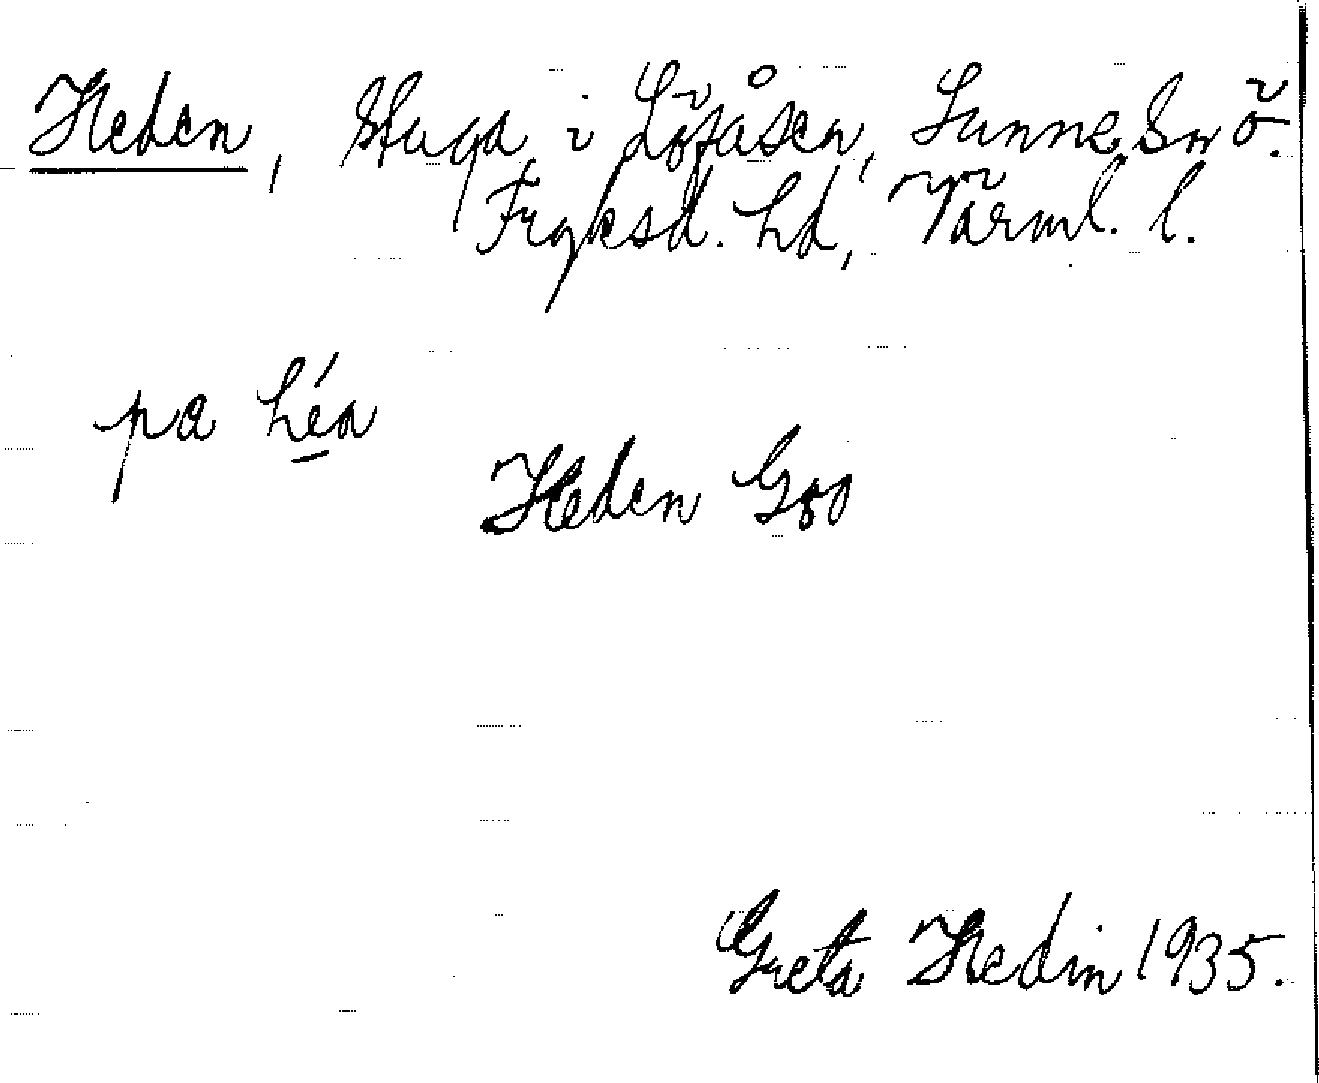 Heden, Stuga i Löfåsen, Sunne sn ö.
Fryksd. hd, Värml. l.
pa héa
Heden G80
Greta Hedin 1935.